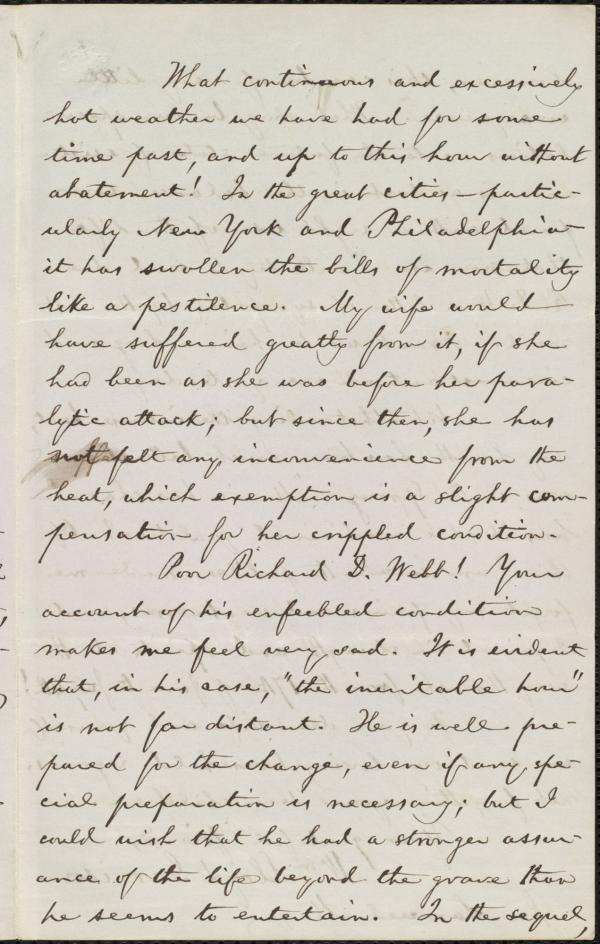 What continuous and excessively
hot weather we have had for some
time past, and up to this hour without
abatement! In the great cities — partic-
ularly New York and Philadelphia —
it has swollen the bills of mortality
like a pestilence. My wife would
have suffered greatly from it, if she
had been as she was before her para-
lytic attack; but since then, she has
not felt any inconvenience from the
heat, which exemption is a slight com-
pensation for her crippled condition.
Poor Richard D. Webb! Your
account of his enfeebled condition
makes me feel very sad. It is evident
that, in his case, "the inevitable hour"
is not far distant. He is well pre-
pared for the change, even if any spe-
cial preparation is necessary; but I
could wish that he had a stronger assur-
ance of the life beyond the grave than
he seems to entertain. In the sequel,